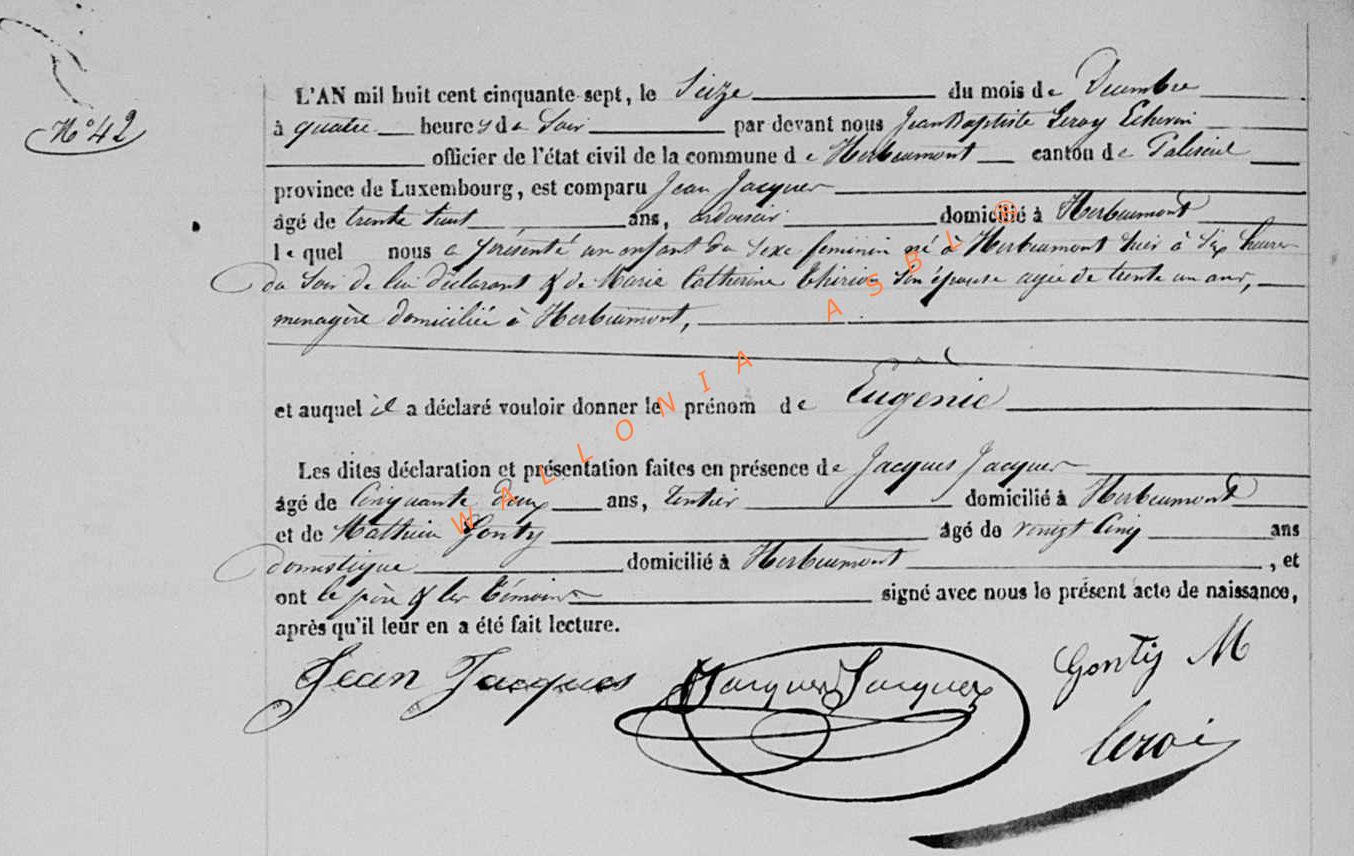 N° 42
L'AN mil huit cent cinquante-sept, le Seize du mois de Decembre
à quatre heures du Soir par devant nous Jean Baptiste Leroy Echevin
officier de l'état civil de la commune de Herbeumont canton de Paliseul
province de Luxembourg, est comparu Jean Jacques
âgé de trente ans, ardoisier domicilié à Herbeumont
lequel nous a présenté un enfant du sexe feminin né à Herbeumont hier à Six heures
du Soir de lui déclarant & de Marie Catherine Thirion Son épouse agée de trente un ans,
menagère domiciliée à Herbeumont,
et auquel il a déclaré vouloir donner le prénom de Eugénie
Les dites déclaration et présentation faites en présence de Jacques Jacques
âgé de Cinquante deux ans, rentier domicilié à Herbeumont
et de Mathieu Gonty âgé de vingt Cinq ans
domestique domicilié à Herbeumont, et
ont le père & les témoins signé avec nous le présent acte de naissance,
après qu'il leur en a été fait lecture.
Jean Jacques Jacques Jacques Gontÿ M
Leroi
WALLONIA ASBL ®